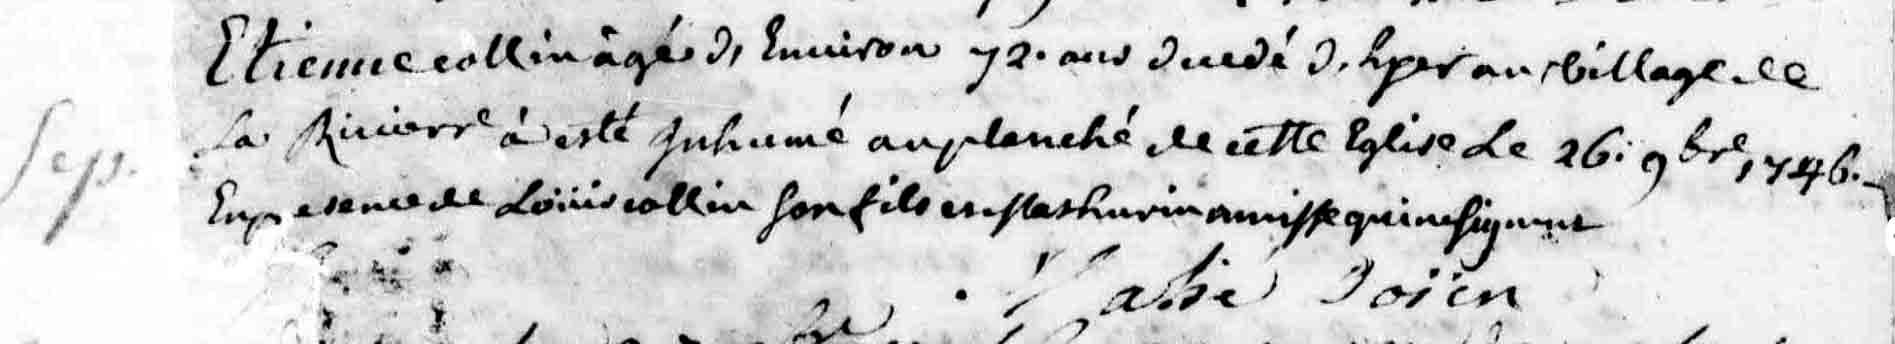 Etienne collin âgé d'Environ 72. ans decedé d'hyer au village de
Sep. La Rivierre à esté Inhumé au planché de cette Eglise Le 26. 9bre 1746.
En presence de Loüis collin son fils et Mathurin qui ne signent
Doïen